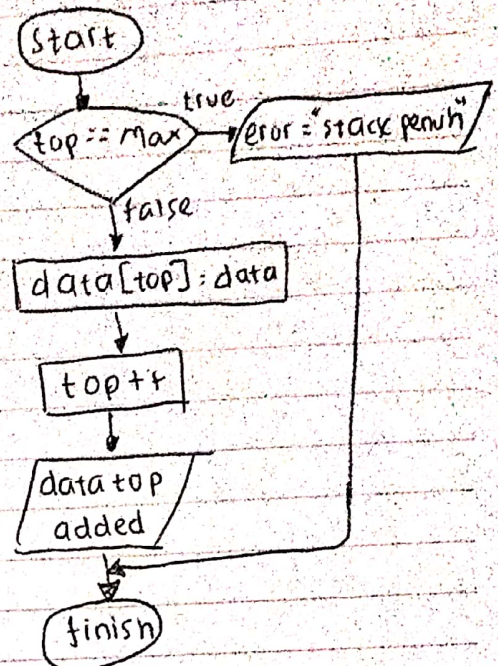 start
top == Max
true
eror = "stack penuh"
false
data[top] = data
top++
data top
added
finish